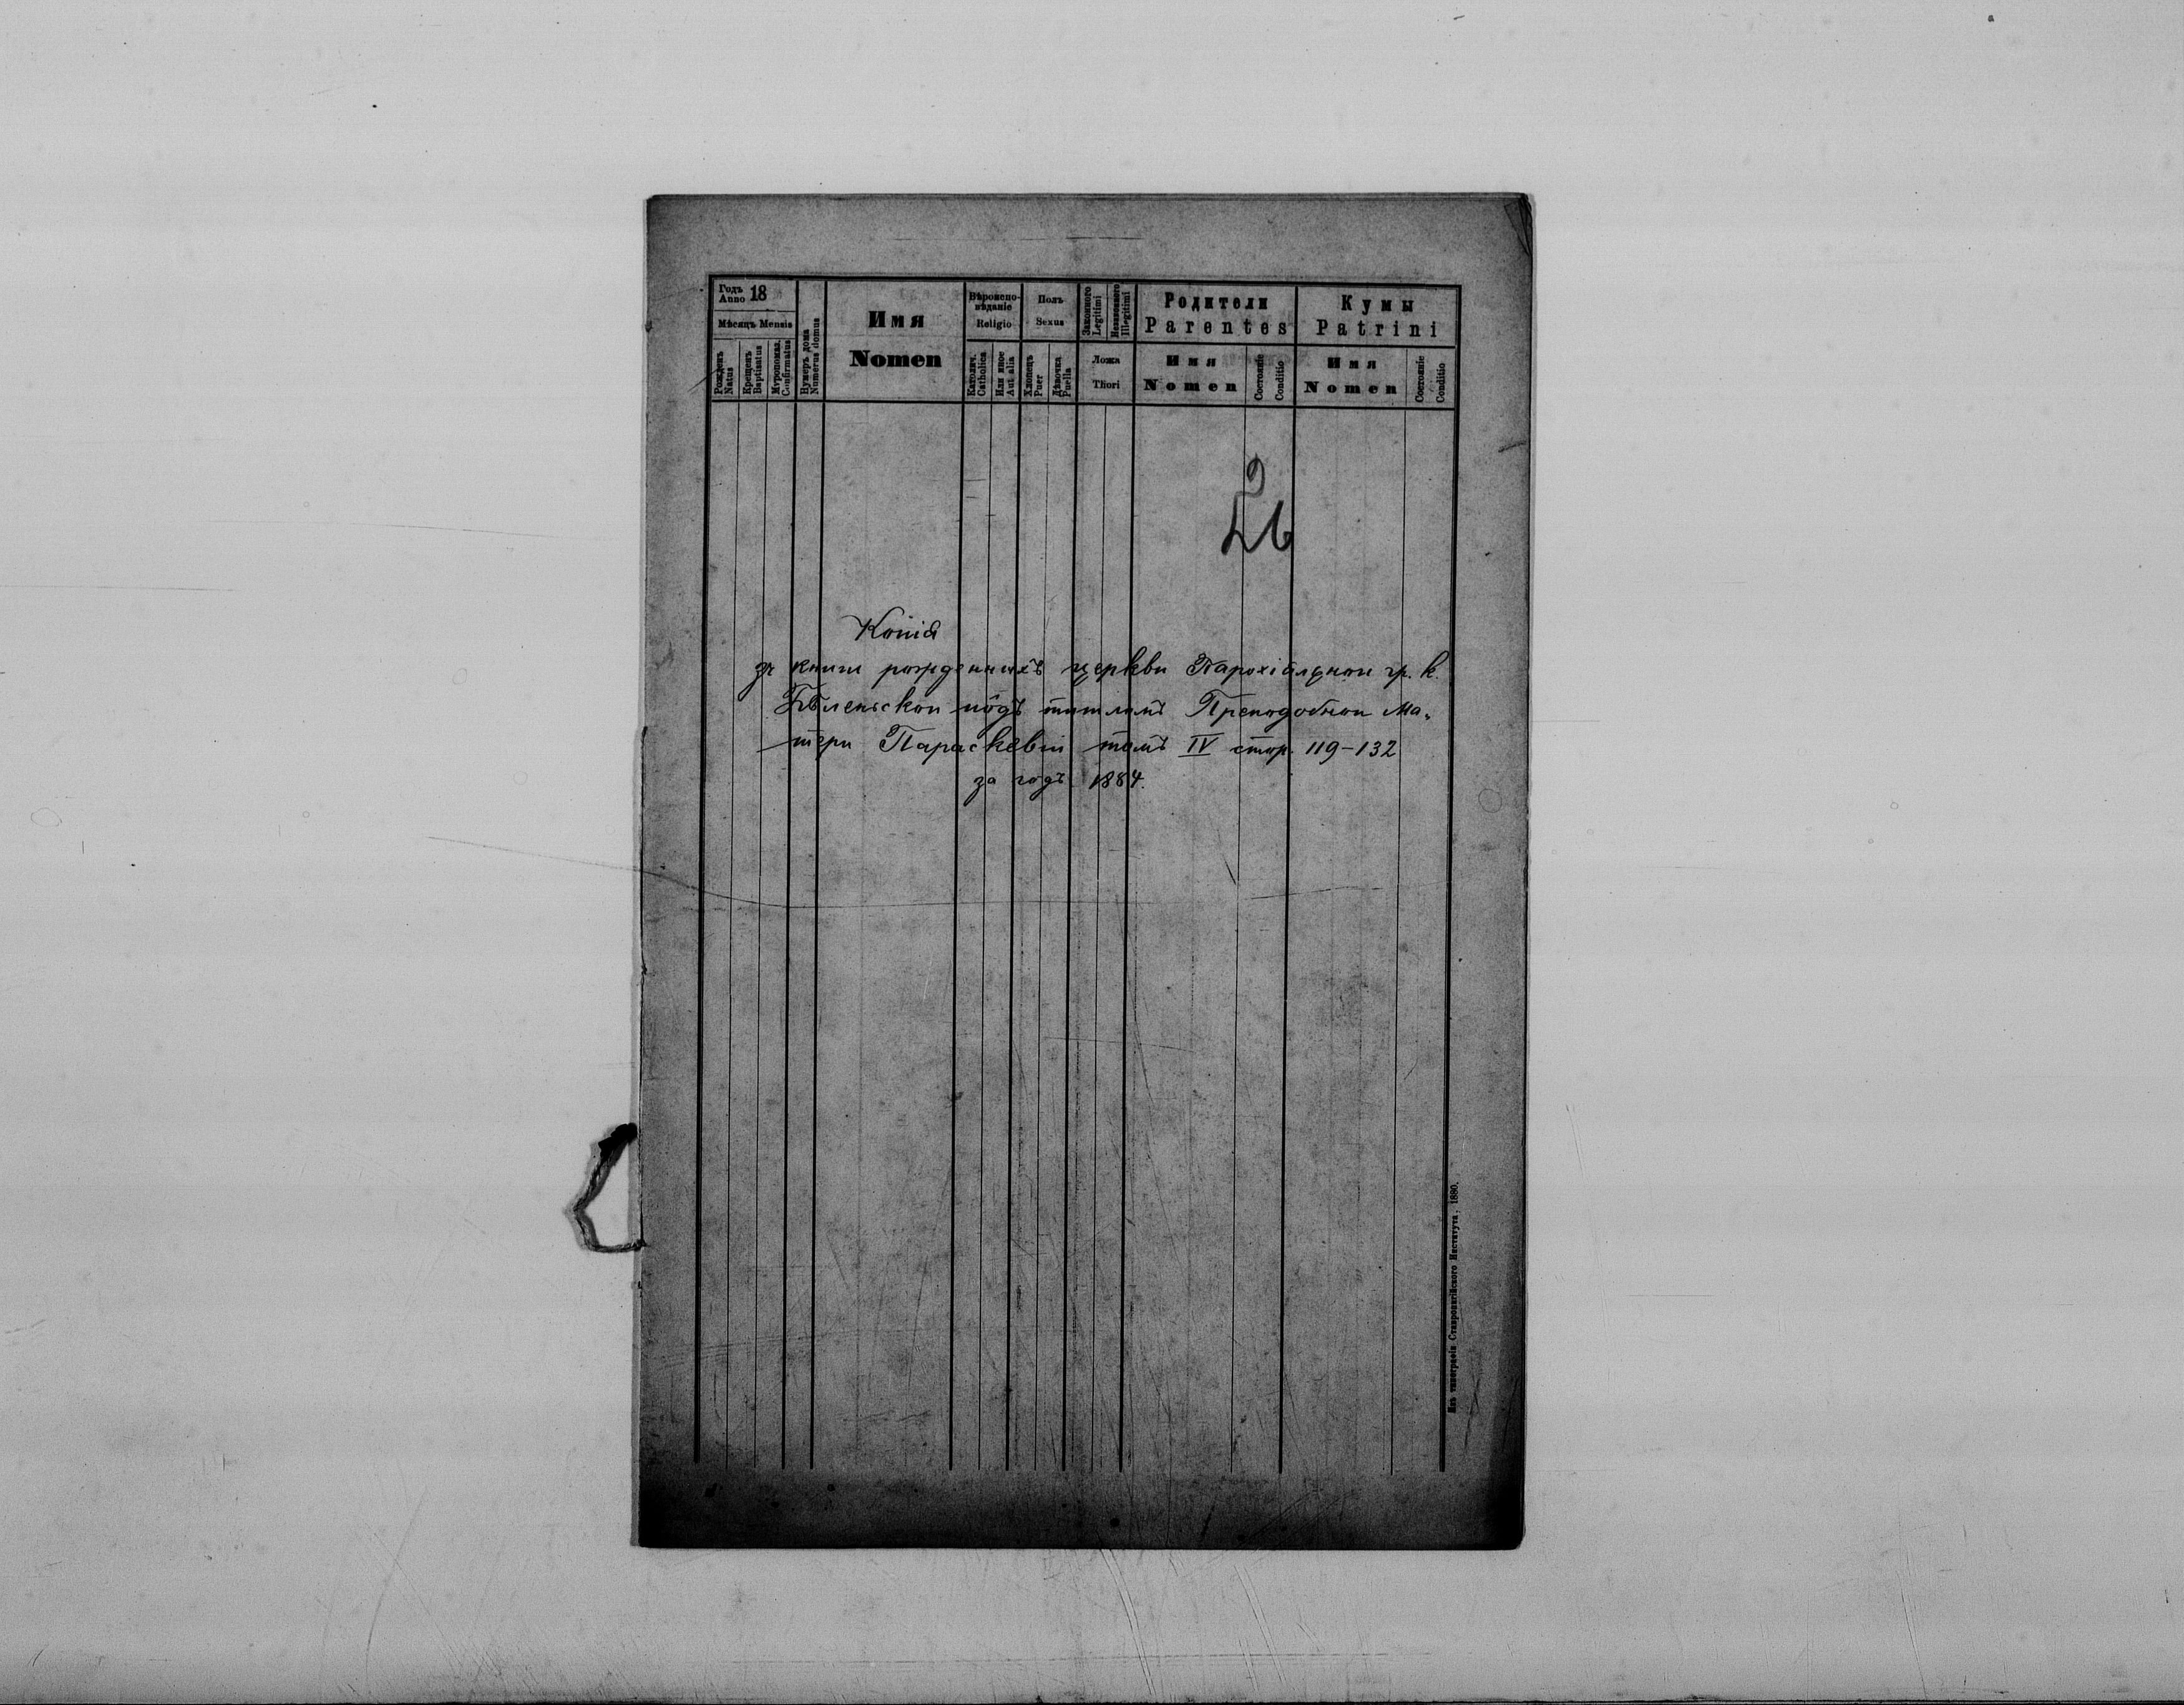 Годъ
Anno 18
Мѣсяцъ Mensis
Рожденъ
Natus
Крещенъ
Baptisatus
Мѵропомаз.
Confirmatus
Нумеръ дома
Numerus domus
Имя
Nomen
Вѣроиспо-
вѣданіе
Religio
Католич.
Catholica
Или иное
Aut alia
Полъ
Sexus
Хлопецъ
Puer
Дѣвочка
Puella
Законного
Legitimi
Незаконного
Illegitimi
Ложа
Thori
Родители
Parentes
Имя
Nomen
Состояніе
Conditio
Кумы
Patrini
Имя
Nomen
Состояніе
Conditio
Копія
зъ книги рожденныхъ церкви Парохіяльнои гр. к.
пôдъ титломъ Преподобнои Ма„
тери Параскевіи томъ IV стор. 119–132
за годъ 1884.
Изъ типографіи Ставропигійского Института, 1880.